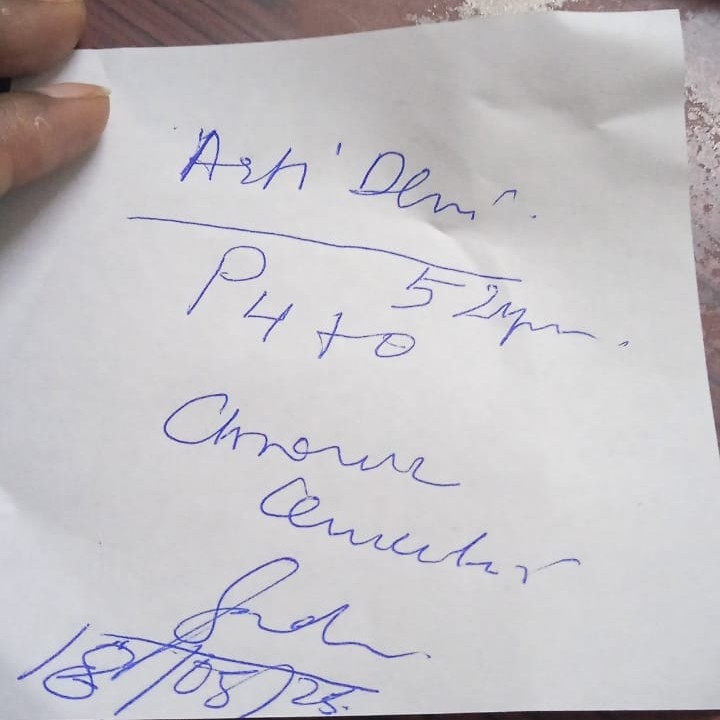 Arti Devi.
52 yrs.
P4+0
Chronic
Cervicitis
18/08/25